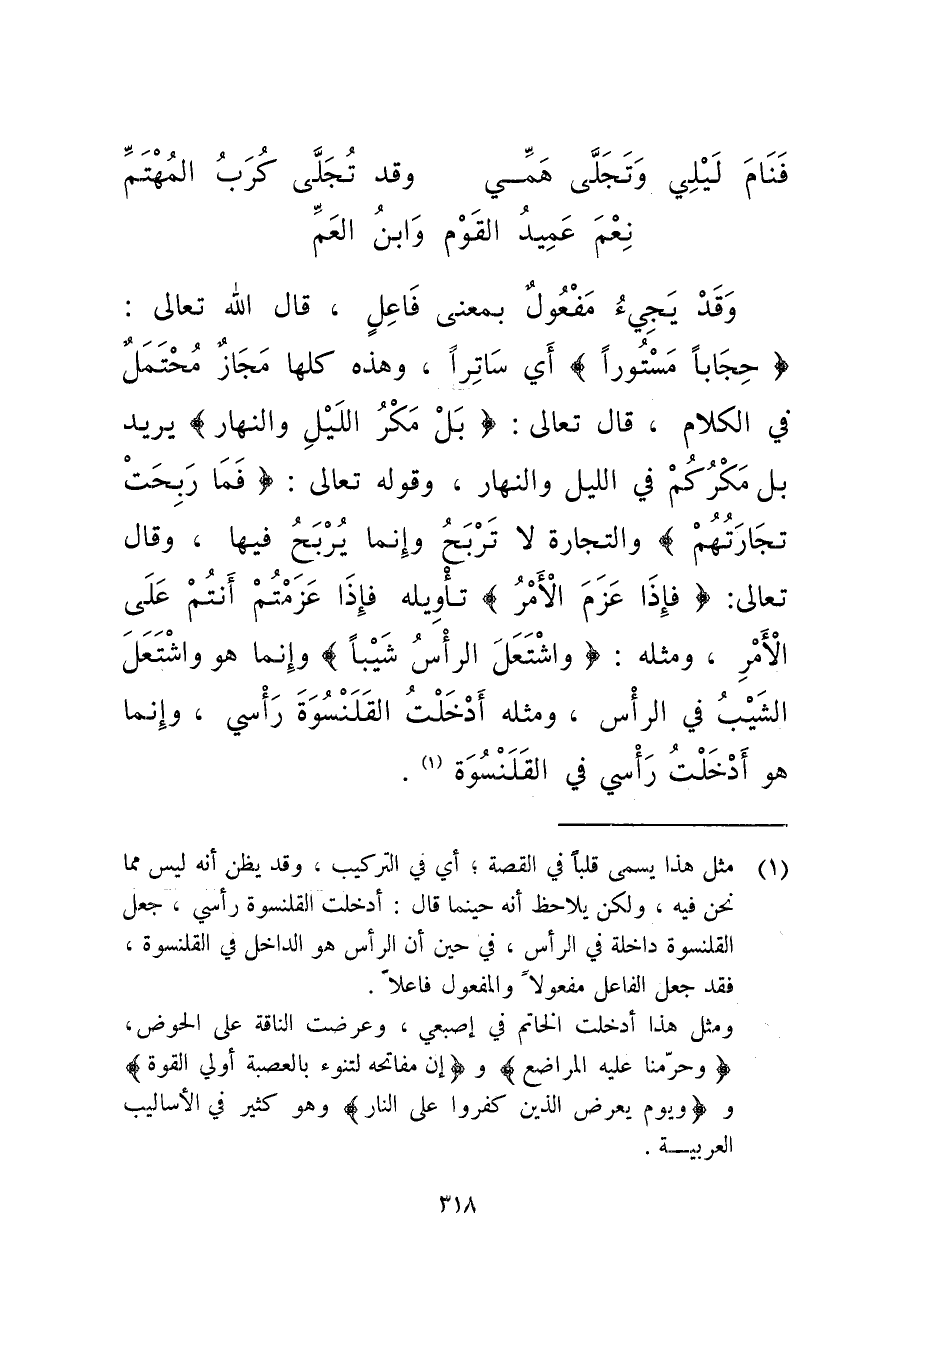 فَنَامَ لَيْلِي وَتَجَلَّى هَمِّـــي وقد تُجَلَّى كُرَبُ المُهْتَمِّ
نِعْمَ عَمِيدُ القَوْمِ وَابنُ العَمِّ
وَقَدْ يَجِيءُ مَفْعُولٌ بمعنى فَاعِلٍ ، قال الله تعالى :
﴿ حِجَاباً مَسْتُوراً ﴾ أي سَاتِراً ، وهذه كلها مَجَازٌ مُحْتَمَلٌ
في الكلام ، قال تعالى : ﴿ بَلْ مَكْرُ اللَيْلِ والنهار ﴾ يريد
بل مَكْرُكُمْ في الليل والنهار ، وقوله تعالى : ﴿ فَمَا رَبِحَتْ
تجَارَتُهُمْ ﴾ والتجارة لا تَرْبَحُ وإنما يُرْبَحُ فيها ، وقال
تعالى: ﴿ فإذَا عَزَمَ الْأَمْرُ ﴾ تأْوِيله فإذَا عَزَمْتُمْ أَنتُمْ عَلَى
الْأَمْرِ ، ومثله : ﴿ واشْتَعَلَ الرأْسُ شَيْباً ﴾ وإنما هو واشْتَعَلَ
الشَيْبُ في الرأْس ، ومثله أَدْخَلْتُ القَلَنْسُوَةَ رَأْسي ، وإنما
هو أَدْخَلْتُ رَأْسي في القَلَنْسُوَة (١) .
(١) مثل هذا يسمى قلباً في القصة ؛ أي في التركيب ، وقد يظن أنه ليس مما
نحن فيه ، ولكن يلاحظ أنه حينما قال : أدخلت القلنسوة رأسي ، جعل
القلنسوة داخلة في الرأس ، في حين أن الرأس هو الداخل في القلنسوة ،
فقد جعل الفاعل مفعولاً والمفعول فاعلاً .
ومثل هذا أدخلت الخاتم في إصبعي ، وعرضت الناقة على الحوض،
﴿ وحرّمنا عليه المراضع ﴾ و ﴿ إن مفاتحه لتنوء بالعصبة أولي القوة ﴾
و ﴿ ويوم يعرض الذين كفروا على النار ﴾ وهو كثير في الأساليب
العربيـــة .
٣١٨